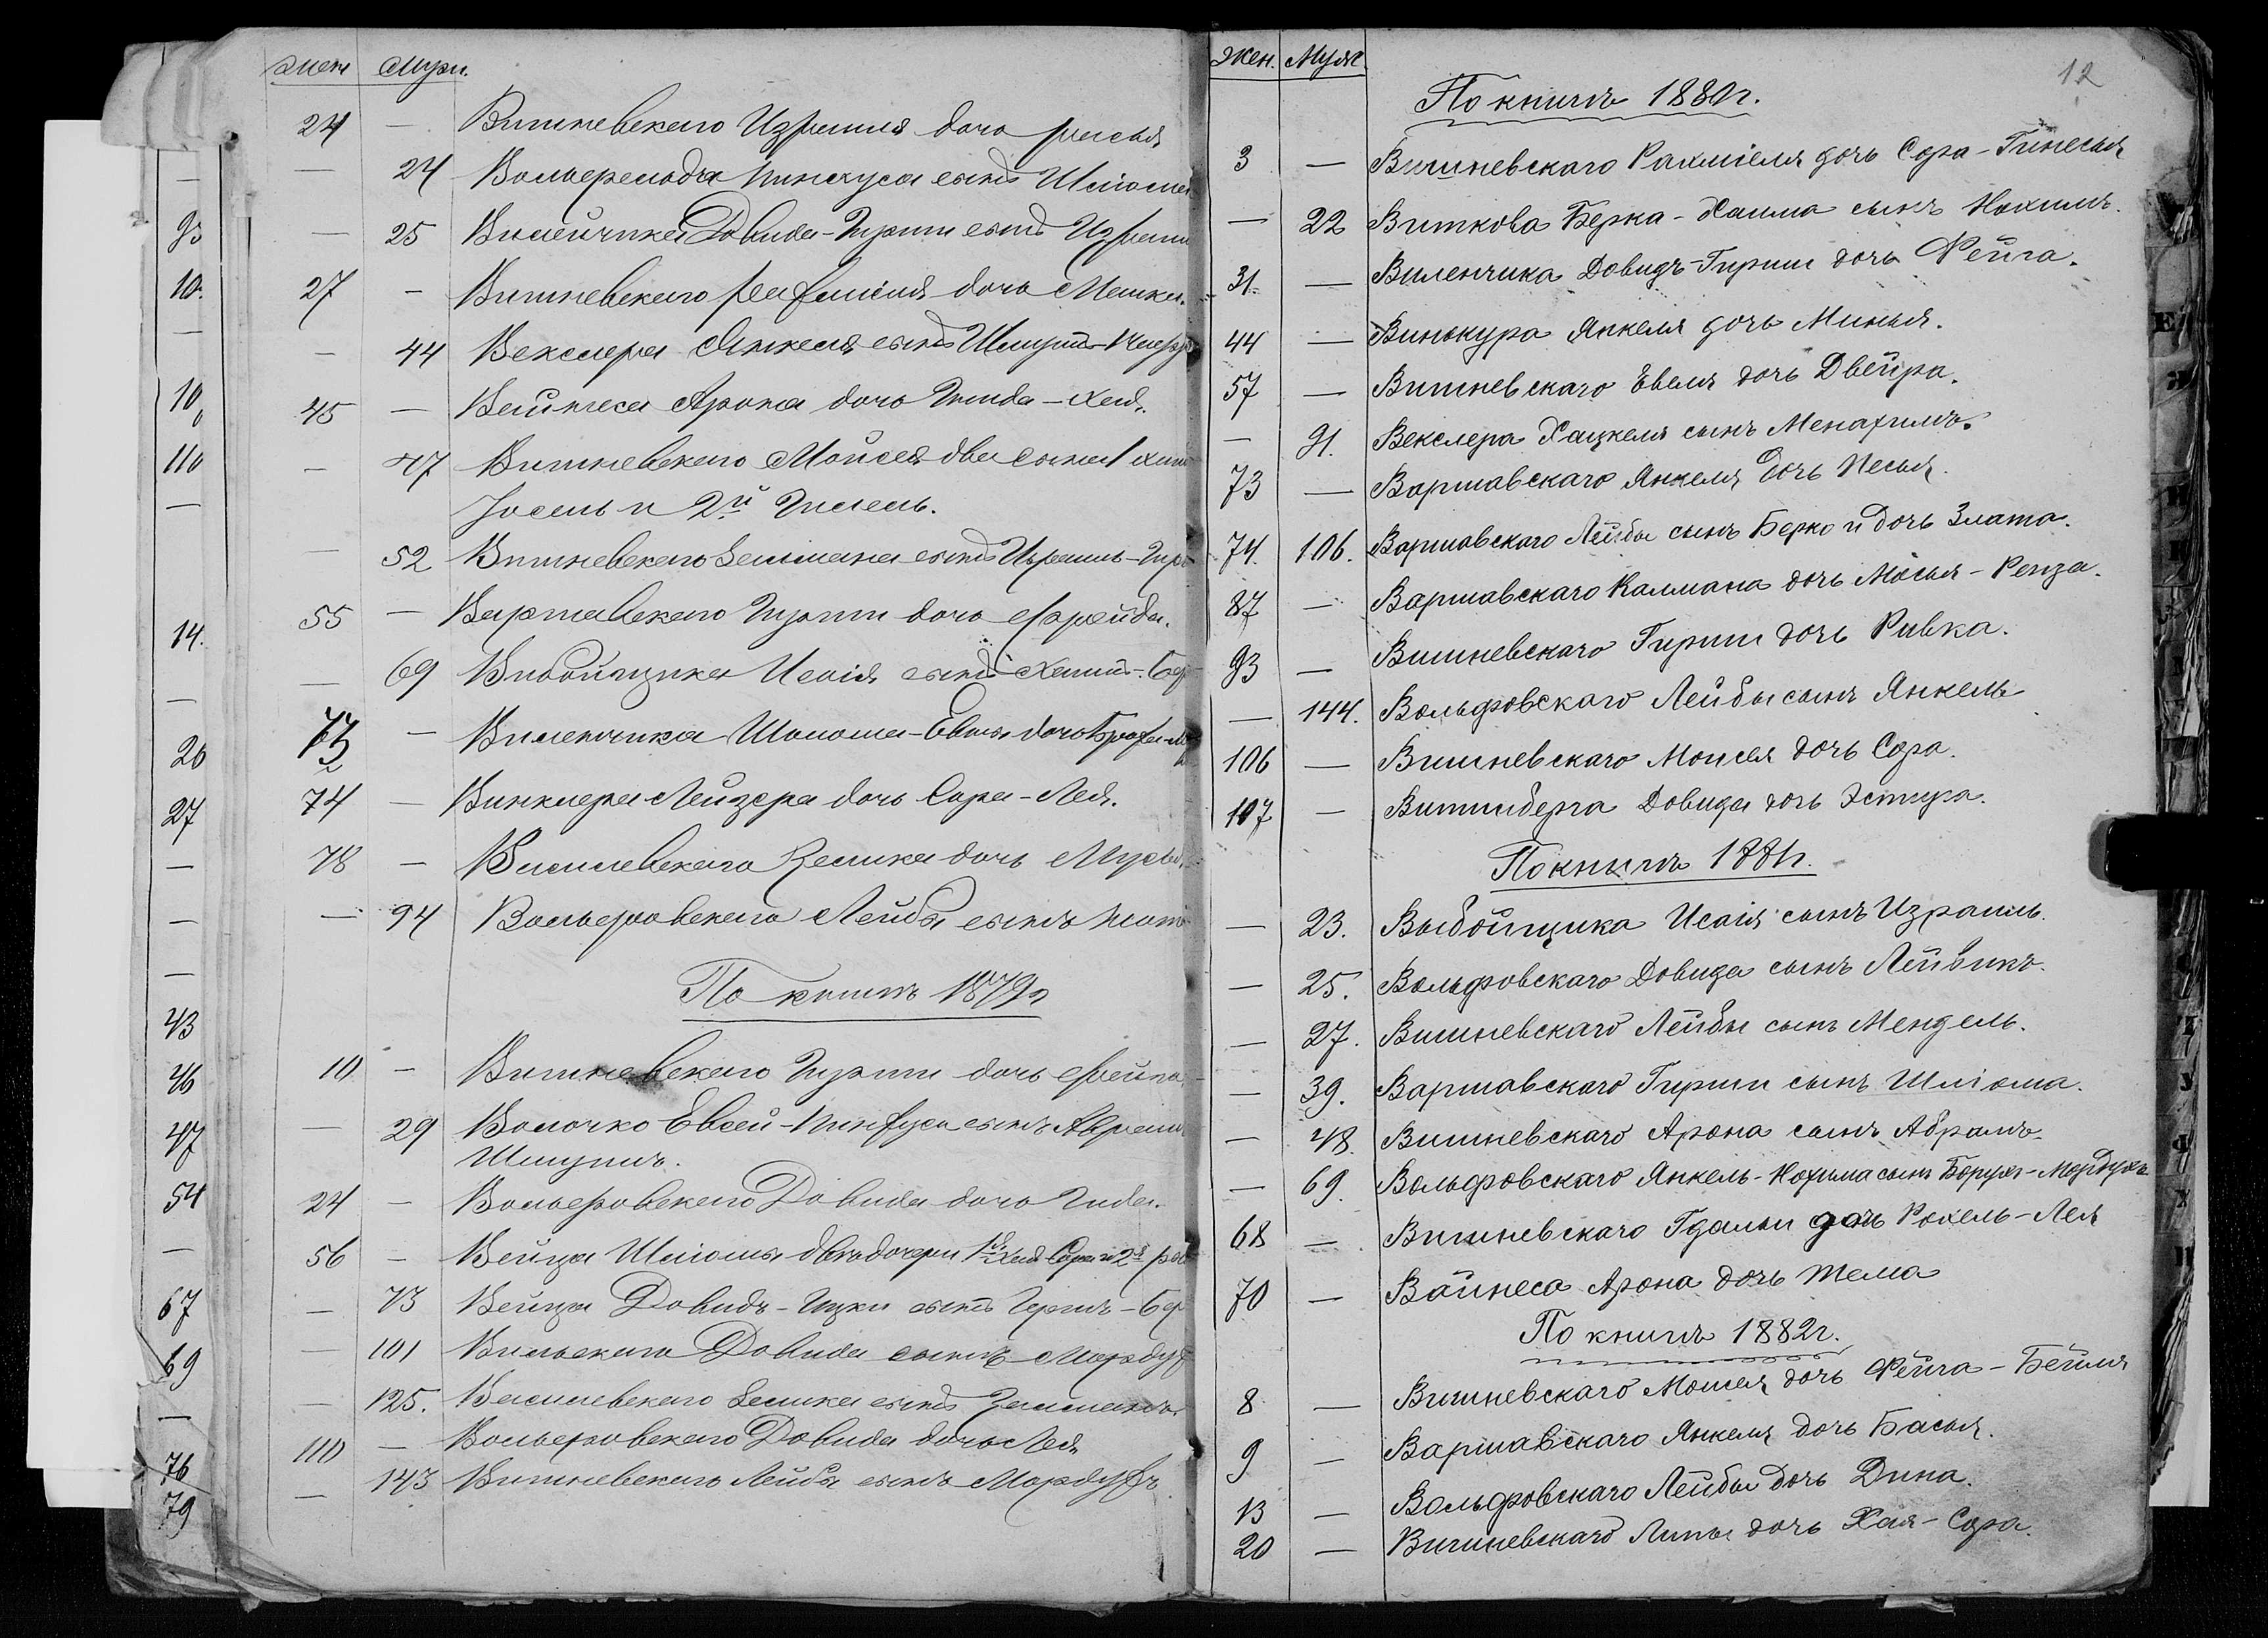 Жен Муж.
24 — Вишневскаго Израиля дочь Рисья
— 24 Вольфельда Пинкуса сынъ Шлёма
— 25 Виленчика Довида-Гирши сынъ Израиль
27 — Вишневскаго Рахмиеля дочь Машка.
— 44 Векслера Янкеля сынъ Шмуль-
45 — Вайнеса Арона дочь Гинда-Хая.
— 47 Вишневскаго Мойсея два сына 1
Іосель и 2й Гилель.
— 52 Вишневскаго Залмана сынъ Израиль-Гирш
55 — Варшавскаго Гирши дочь Фрейда.
— 69 Выбойщика Исаія сынъ Хаимъ-Бер
73 — Виленчика Шолома-Евны дочь
74 — Винклера Лейзера дочь Сора-Лея.
78 — Василевскаго Зелика дочь Мусья.
— 94 Вольфовскаго Лейбы сынъ
По книгѣ 1879г
10 — Вишневскаго Гирши дочь Фейга
— 29 Волочко Евсей-Пинхуса сынъ Авраам
Шмуилъ.
24 — Вольфовскаго Довида дочь Гида.
56 — Вейца Шлёмы двѣ дочери 1я Хая Сора и 2я
— 73 Вейца Довидъ-Ицки сынъ Гершъ-Бер
— 101 Вильскаго Довида сынъ Мордух
— 125. Василевскаго Зелика сынъ Залманъ.
110 — Вольфовскаго Довида дочь Лея
— 143 Вишневскаго Лейбы сынъ Мордухъ
93
10.
10
110
14.
20
27
43
46
47
54
67
69
76
79
12
Жен. Муж.
По книгѣ 1880г.
3 — Вишневскаго Рахміеля дочь Сора-Гинесья
— 22 Виткова Берка-Хаима сынъ Нохимъ.
31. — Виленчика Довидъ-Гирши дочь Фейга.
44 — Винькура Янкеля дочь Минья.
57 — Вишневскаго Евеля дочь Двейра.
— 91. Векслера Хацкеля сынъ Менахимъ.
73 — Варшавскаго Янкеля дочь Песья.
74. 106. Варшавскаго Лейбы сынъ Берко и дочь Злата.
87 — Варшавскаго Калмана дочь Мосья-Рейза.
93 — Вишневскаго Гирши дочь Ривка.
— 144. Вольфовскаго Лейбы сынъ Янкель
106 — Вишневскаго Моисея дочь Сора.
107 — Витинберга Довида дочь Эстера.
По книгѣ 1881г.
— 23. Выбойщика Исаія сынъ Израиль.
— 25. Вольфовскаго Довида сынъ Лейвикъ.
— 27. Вишневскаго Лейбы сынъ Мендель.
— 39. Варшавскаго Гирши сынъ Шліома.
— 48. Вишневскаго Арона сынъ Абрамъ.
— 69. Вольфовскаго Янкель-Нохима сынъ Борухъ-Мордухъ
68 — Вишневскаго Гдальи дочь Рохель-Лея
70 — Вайнеса Арона дочь Тема
По книгѣ 1882г.
8 — Вишневскаго Моисея дочь Фейга-Бейля
9 — Варшавскаго Янкеля дочь Басья.
13 — Вольфовскаго Лейбы дочь Дина.
20 — Вишневскаго Липы дочь Хая-Сора.